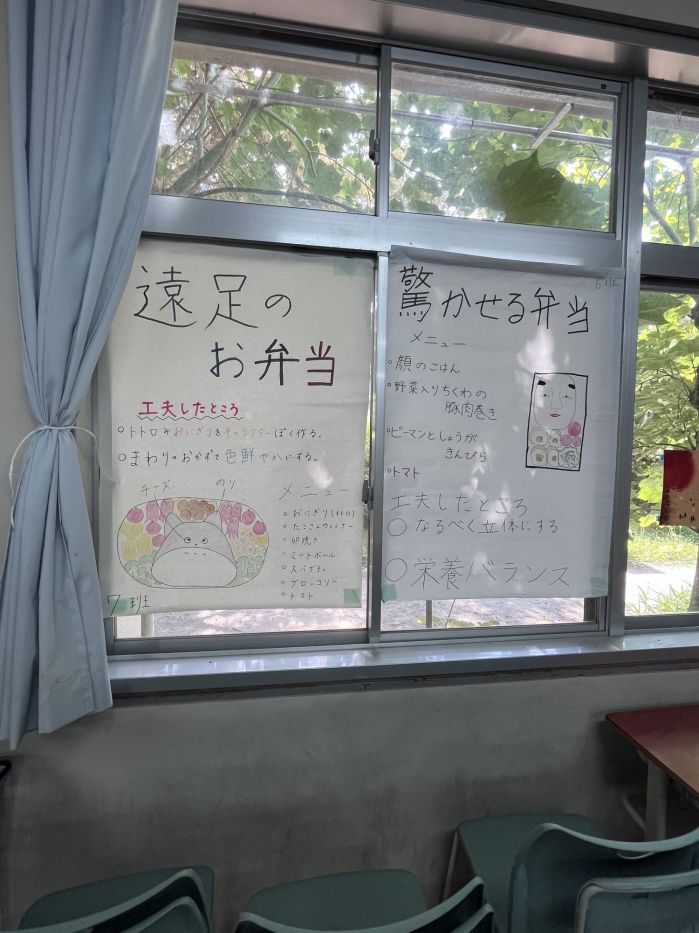 遠足の
お弁当
工夫したところ
○トトロのおにぎりをキャラクターぽく作る。
○まわりのおかずで色鮮やかにする。
チーズ
のり
メニュー
○おにぎり(トトロ)
○たこさんウィンナー
○卵焼き
○ミートボール
○スパゲティ
○ブロッコリー
○トマト
7班
6班
驚かせる弁当
メニュー
○顔のごはん
○野菜入りちくわの
豚肉巻き
○ピーマンとしょうが
きんぴら
○トマト
工夫したところ
○なるべく立体にする
○栄養バランス